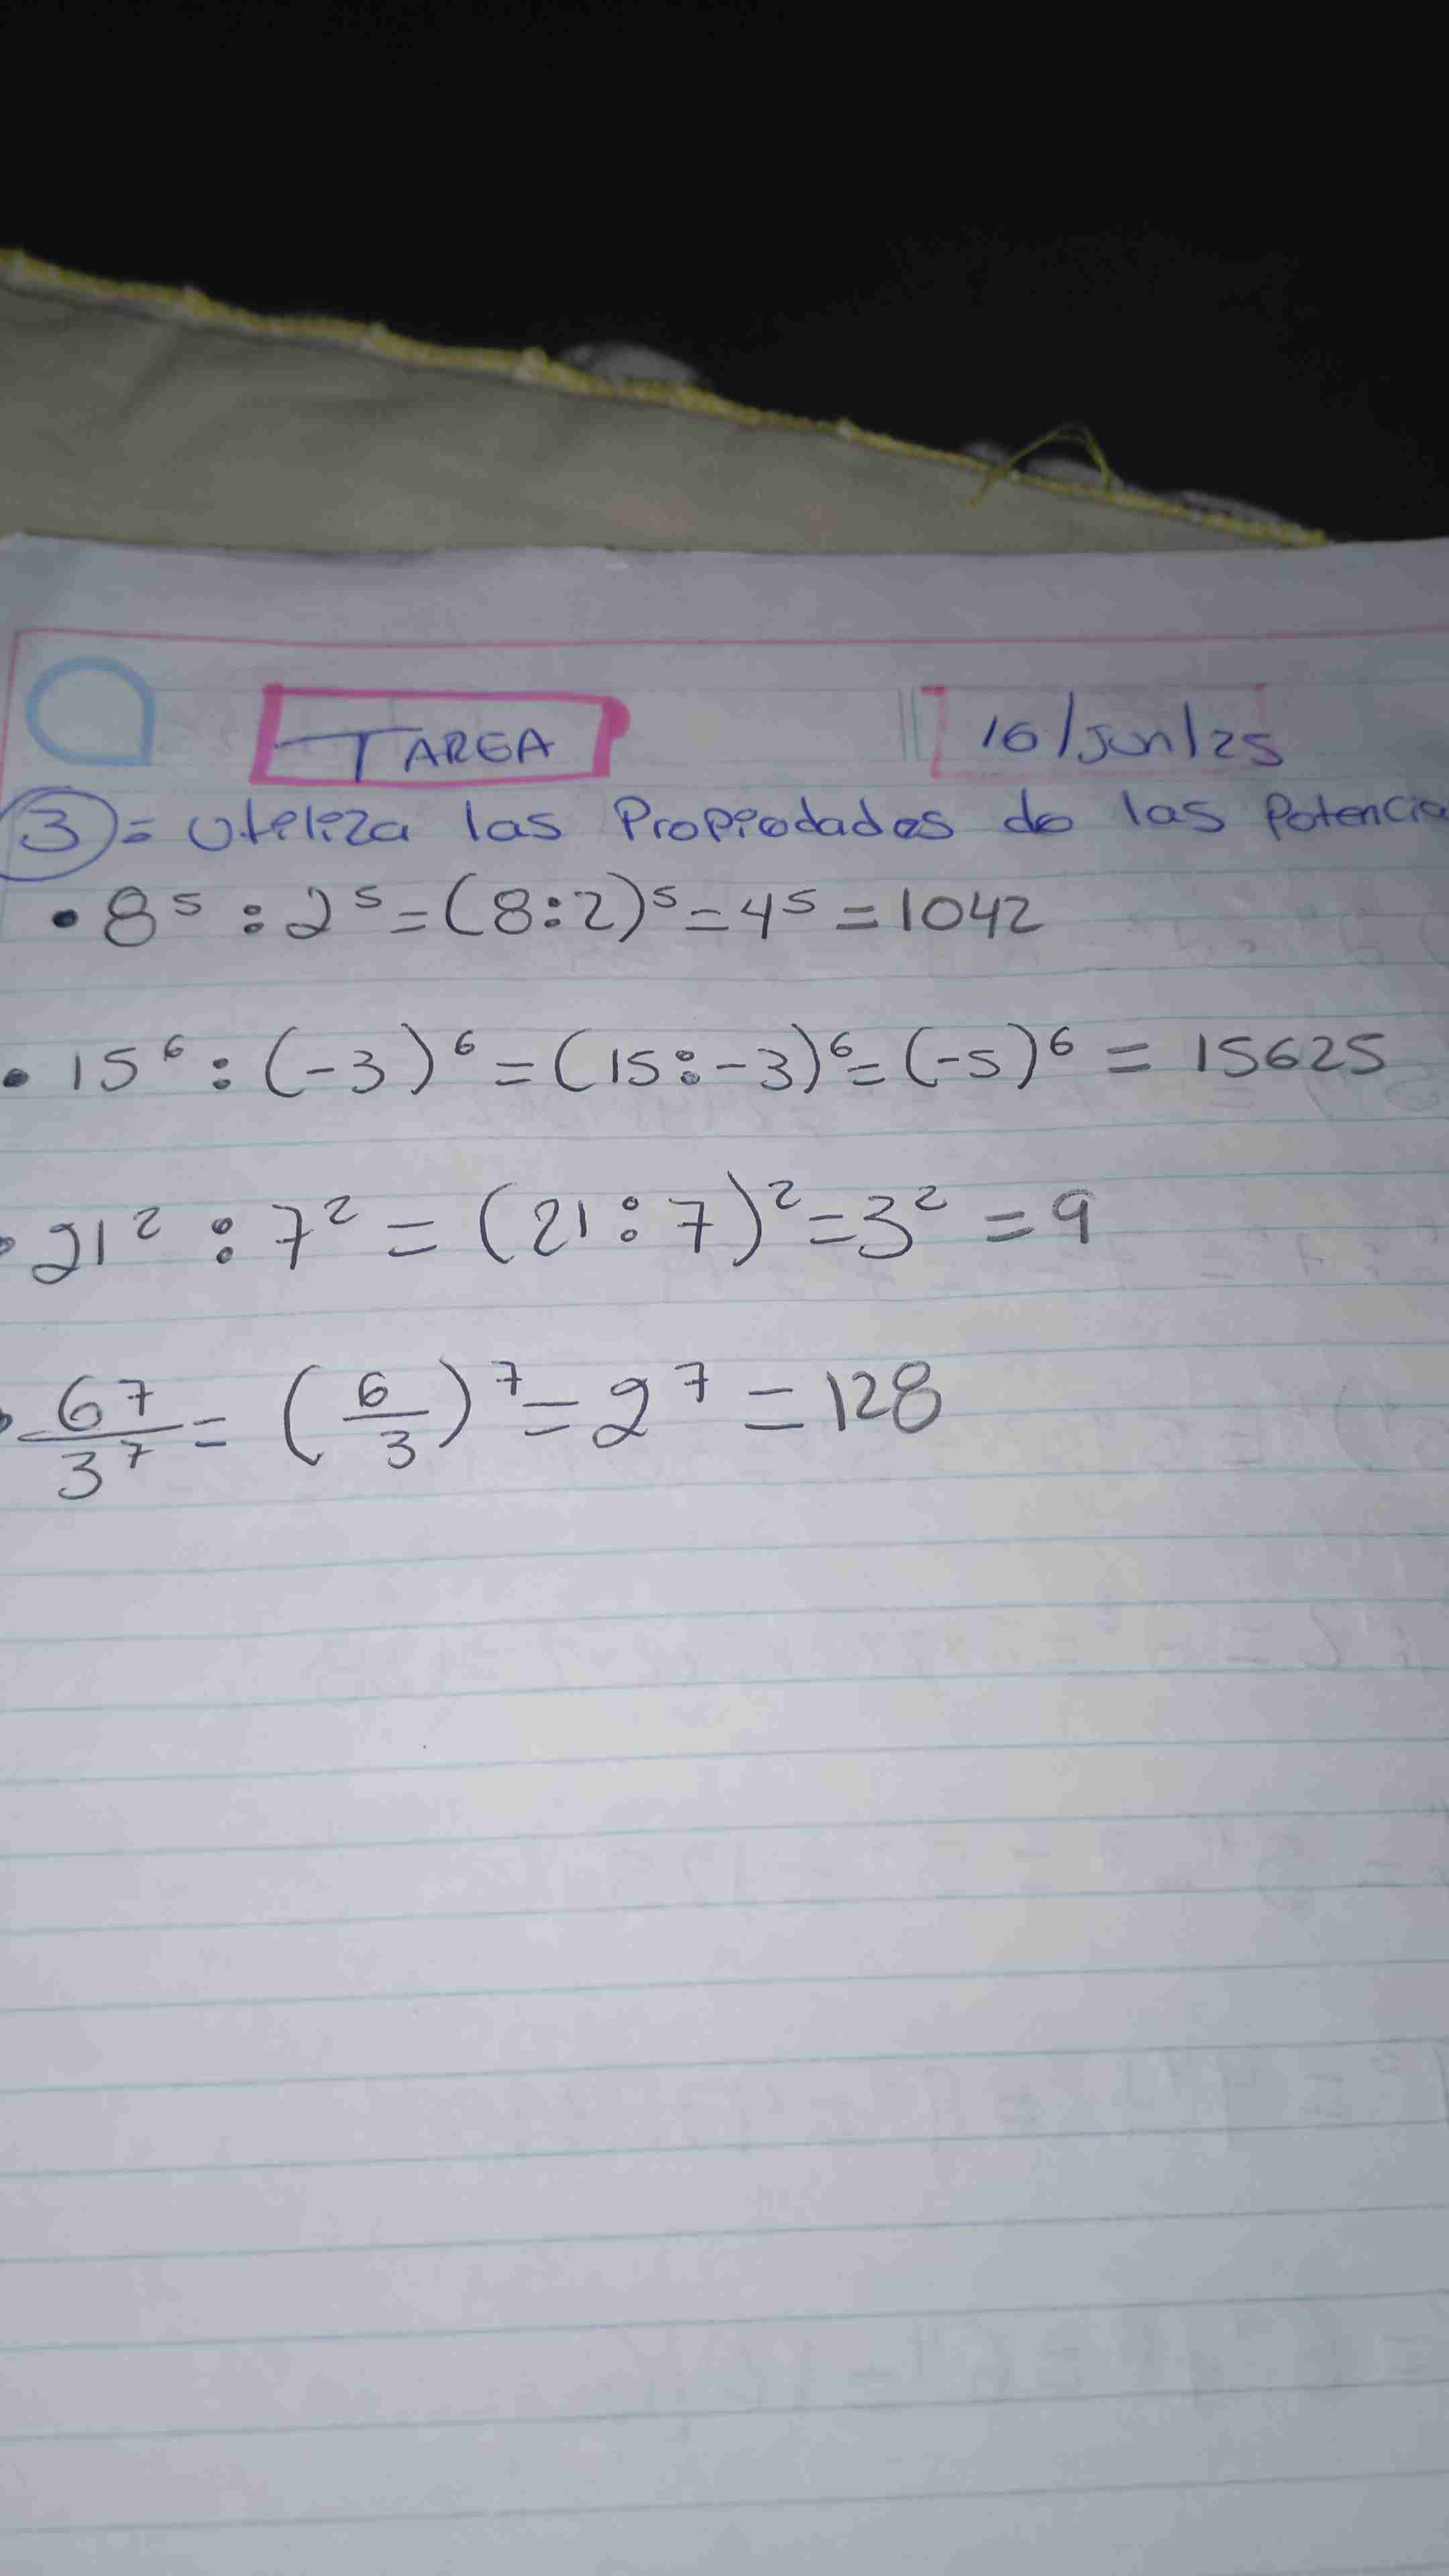 TAREA 16/jun/25
3 = Utiliza las Propiedades de las Potencia
• 8⁵ : 2⁵ = (8:2)⁵ = 4⁵ = 1042
• 15⁶ : (-3)⁶ = (15:-3)⁶ = (-5)⁶ = 15625
• 21² : 7² = (21:7)² = 3² = 9
• 6⁷/3⁷ = (6/3)⁷ = 2⁷ = 128